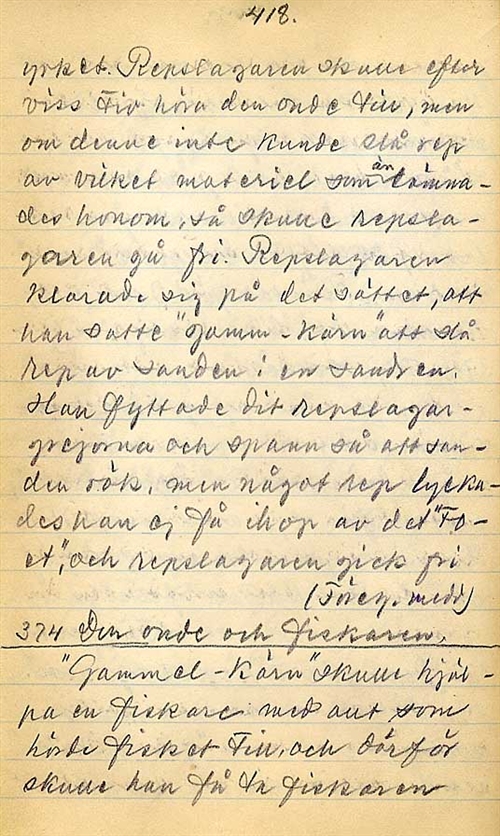 418.
yrket. Repslagaren skulle efter
viss tid höra den onde till, men
om denne inte kunde slå rep
av vilket materiel som än lämna-
des honom, så skulle repsla-
garen gå fri. Repslagaren
klarade sig på det sättet, att
han satte "Gamm-Kärn" att slå
rep av sanden i en sandren.
Han flyttade dit repslagar-
grejorna och spann så att san-
den rök, men något rep lycka-
des han ej få ihop av det "To-
et", och repslagaren gick fri.
(Föreg. medd)
374 Den onde och fiskaren.
"Gammel-Kärn" skulle hjäl-
pa en fiskare med allt som
hörde fisket till, och därför
skulle han få ta fiskaren